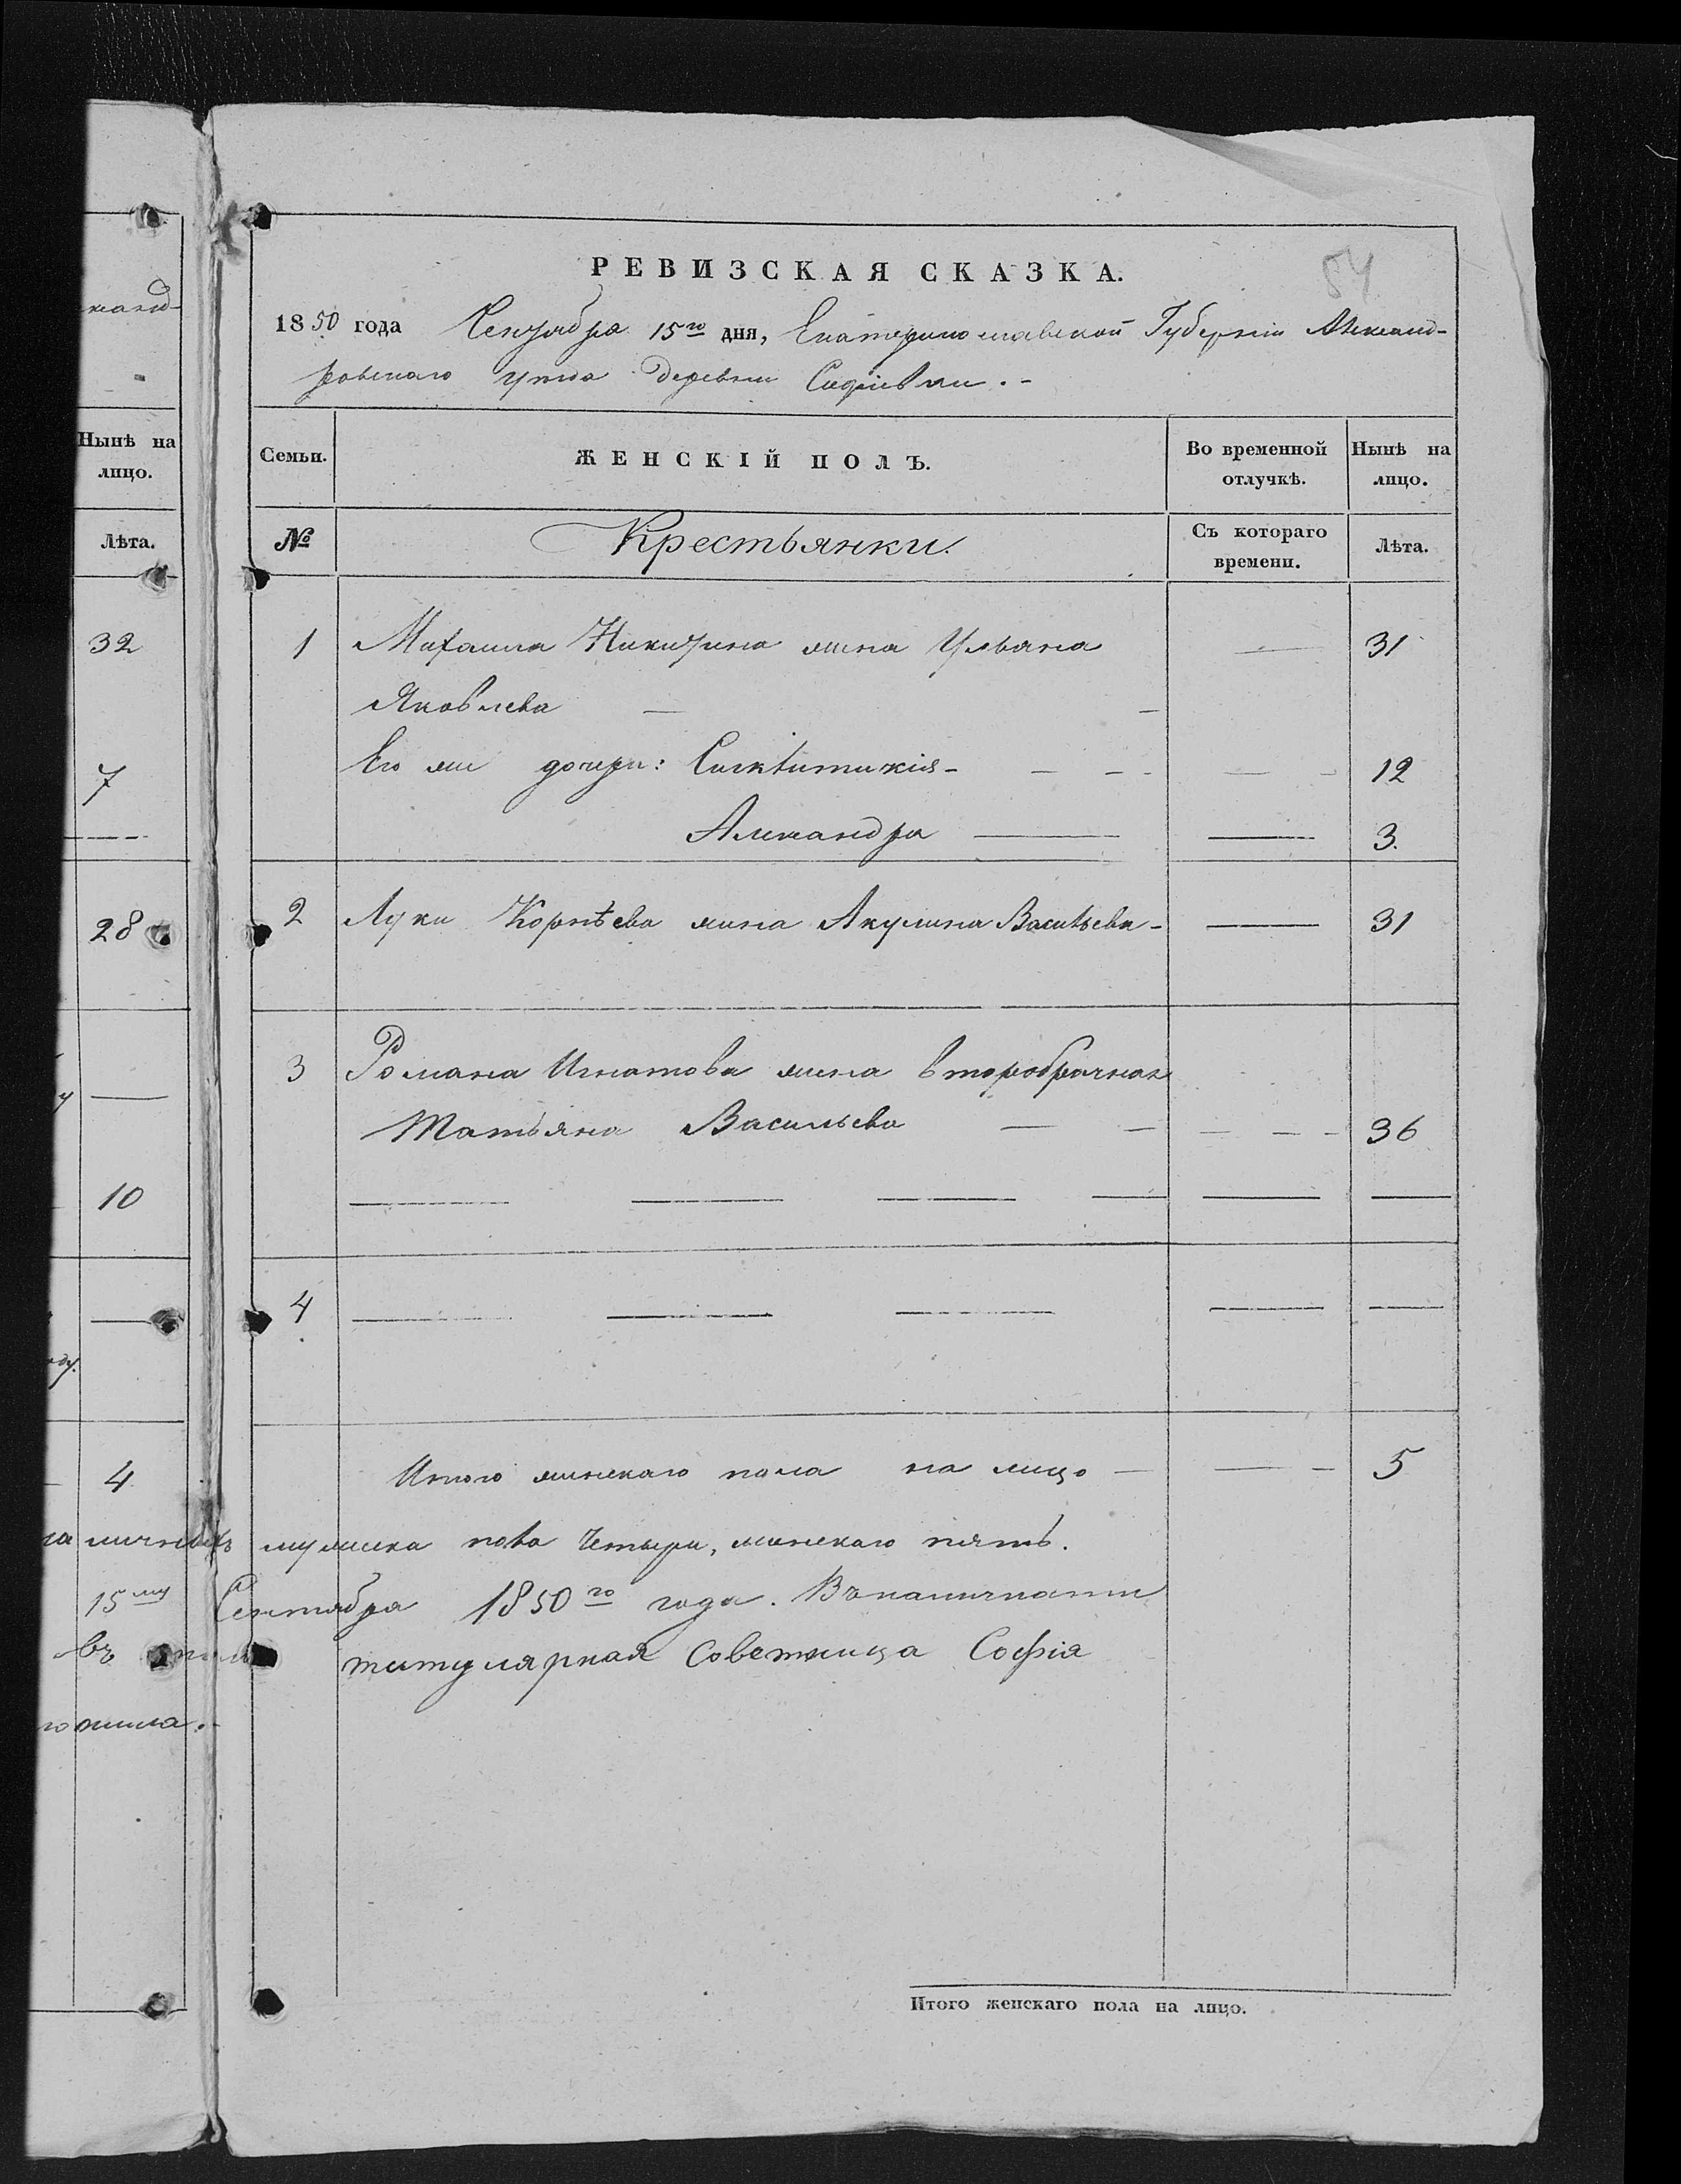 канд-
Нынѣ на
лицо.
Лѣта.
32
7
28
10
4
РЕВИЗСКАЯ СКАЗКА.
54
1850 года Сентября 15го дня, Екатеринославской Губерніи Александ-
ровскаго уѣзда деревни Софіевки.-
Семьи.
ЖЕНСКІЙ ПОЛЪ.
Во временной
отлучкѣ.
Нынѣ на
лицо.
№
Крестьянки.
Съ котораго
времени.
Лѣта.
1 Михаила Никитина жена Ульяна — 31
Яковлева — —
Его же дочери: Синклитикія - — - - — - 12
Александра — — 3.
2 Луки Корнѣева жена Акулина Васильева - — 31
3 Романа Игнатова жена второбрачная
Татьяна Васильева — — — — - 36
— — — — — —
4 — — — — —
Итого женскаго пола на лицо — — - 5
наличныхъ мужеска пола четыри, женскаго пять.
15му Сентября 1850го года. Въ
въ титулярная Советница Софія
Итого женскаго пола на лицо.